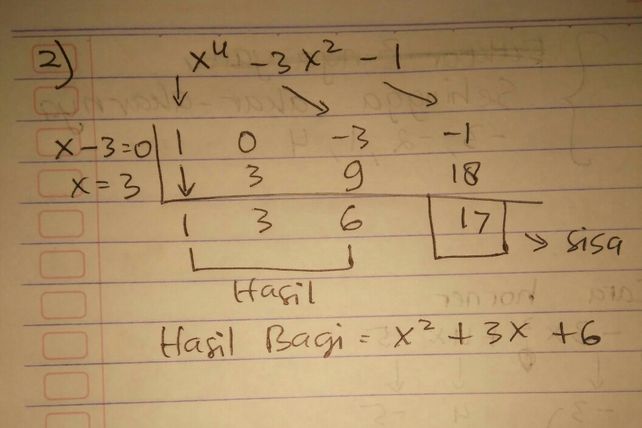 2) x⁴ - 3x² - 1
x - 3 = 0 | 1 0 -3 -1
x = 3 3 9 18
1 3 6 17 → sisa
Hasil
Hasil Bagi = x² + 3x + 6